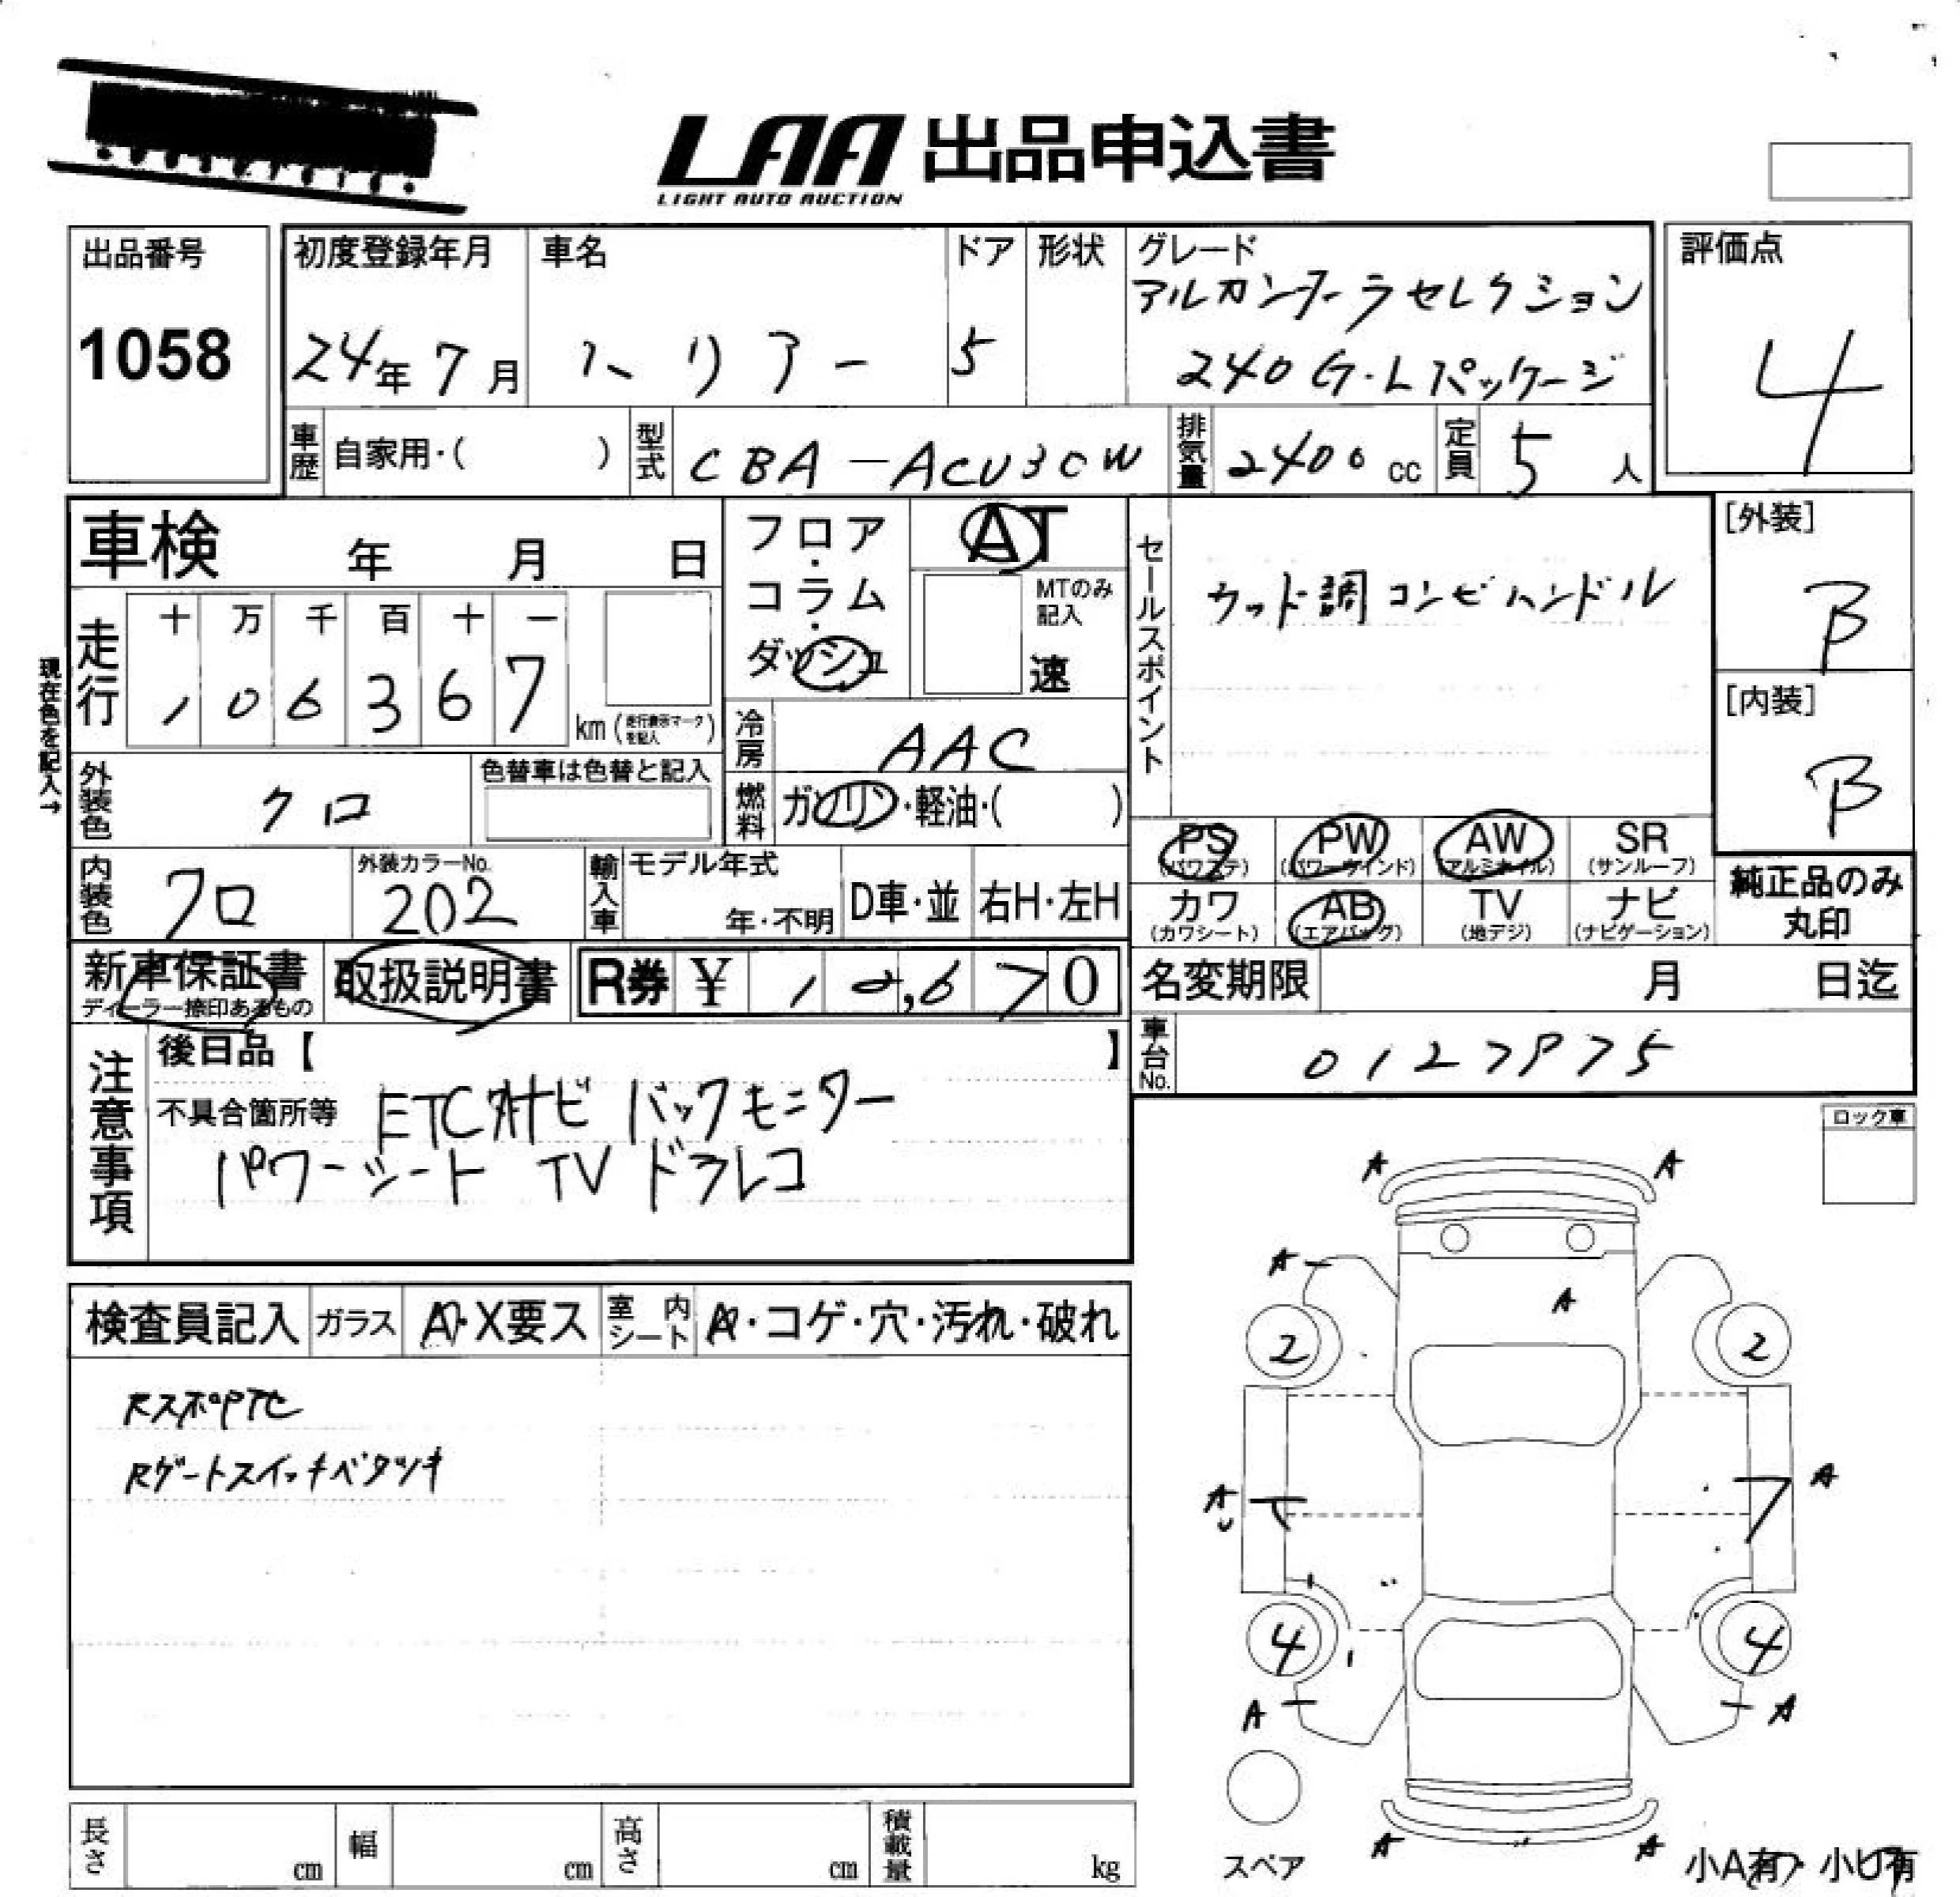 LAA 出品申込書
LIGHT AUTO AUCTION
出品番号
1058
初度登録年月
24年 7月
車名
ハリアー
ドア
5
形状
グレード
アルカンターラセレクション
240G・Lパッケージ
評価点
4
車歴 自家用・( )
型式 CBA-ACU30W
排気量 2400 cc
定員 5 人
車検 年 月 日
フロア・コラム・ダッシュ
AT
MTのみ記入
速
セールスポイント
ウッド調コンビハンドル
[外装]
B
[内装]
B
現在色を記入→
走行
十 万 千 百 十 一
1 0 6 3 6 7
km (走行表示マークを記入)
冷房 AAC
外装色 クロ
色替車は色替と記入
燃料 ガソリン・軽油・( )
PS (パワステ)
PW (パワーウインド)
AW (アルミホイル)
SR (サンルーフ)
内装色 クロ
外装カラーNo. 202
輸入車 モデル年式
年・不明
D車・並
右H・左H
カワ (カワシート)
AB (エアバッグ)
TV (地デジ)
ナビ (ナビゲーション)
純正品のみ
丸印
新車保証書
ディーラー捺印あるもの
取扱説明書
R券 ¥ 12,670
名変期限 月 日迄
車台No.
注意事項
後日品【 】
不具合箇所等 ETC 外ナビ バックモニター
パワーシート TV ドラレコ
ロック車
検査員記入
ガラス A・X要ス
室内シート A・コゲ・穴・汚れ・破れ
Rゲートスイッチベタツキ
A A
A
A
2 2
A A
4 4
A A
スペア
A A
小A有・小U有
長さ cm
幅 cm
高さ cm
積載量 kg